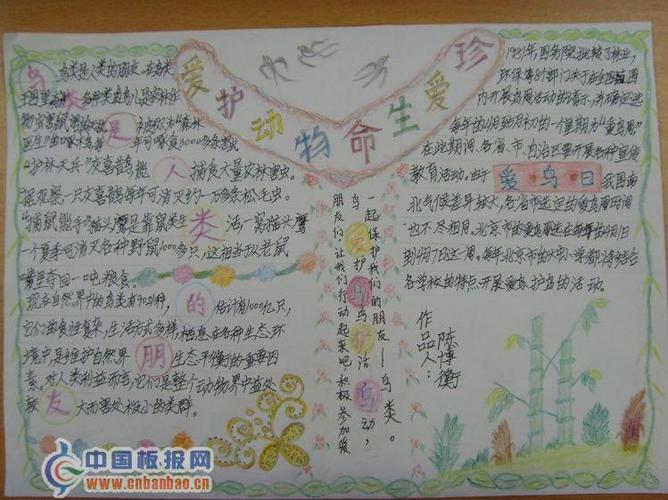 爱护动物命生爱珍
鸟类是人类的朋友，在鸟类
王国里
医生"
"森林
可啄食3000多条害虫
"护林天兵"灰喜鹊能
捕食大量农林害虫。
据观察一只灰喜鹊每年可消灭约一万多条松毛虫。
"捕鼠能手"猫头鹰是靠鼠类生
活一窝猫头鹰
一个夏季可消灭各种野鼠1000多只，这相当于从老鼠
嘴里夺回一吨粮食。
现在自然界中的鸟类有902种，
估计有1000亿只，
它们的食性复杂，生活方式多样，栖息在各种生态环
境中，是维护自然界
生态平衡的重要因
素。对人类利益而言，它们是整个动物界中益处
较
大而害处极小的类群。
鸟类是人类的朋友
一起保护我们的朋友——鸟类。
鸟爱护鸟护活鸟动，
朋友们，让我们行动起来吧积极参加爱
1981年，国务院批转了林业，
环保等8个部门关于在全国范围
内开展爱鸟周活动的请示，并确定
每年的4月至5月初的一个星期为"爱鸟周"
在此期间，各省、市、自治区要开展各种宣传
教育活动。由于
爱鸟日
我国南
北气候差异较大，各省市选定的爱鸟周时间
也不尽相同。北京市的爱鸟周选在每年的4月1日
到4月7日这一周。每年北京市的大中小学都将结合
各学校的特点开展爱鸟、护鸟的活动。
作品人：
陈博衡
中国板报网
www.cnbanbao.cn